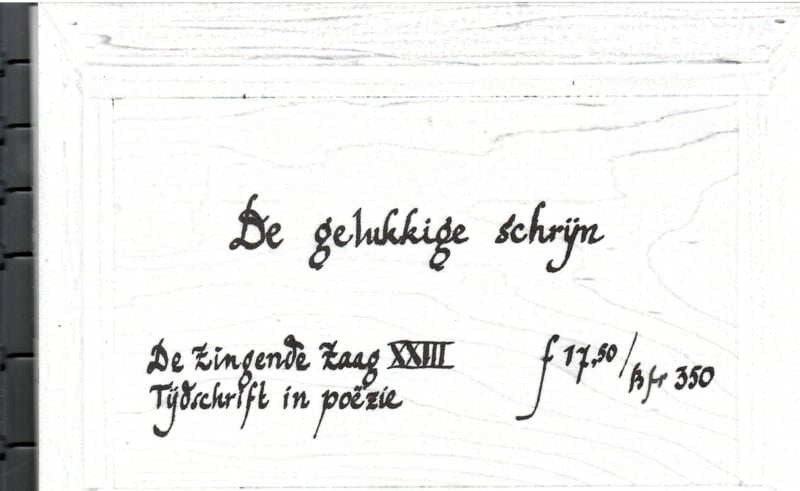 De gelukkige schrijn
De Zingende Zaag XXIII
Tijdschrift in poëzie
f 17,50 / Bfr 350